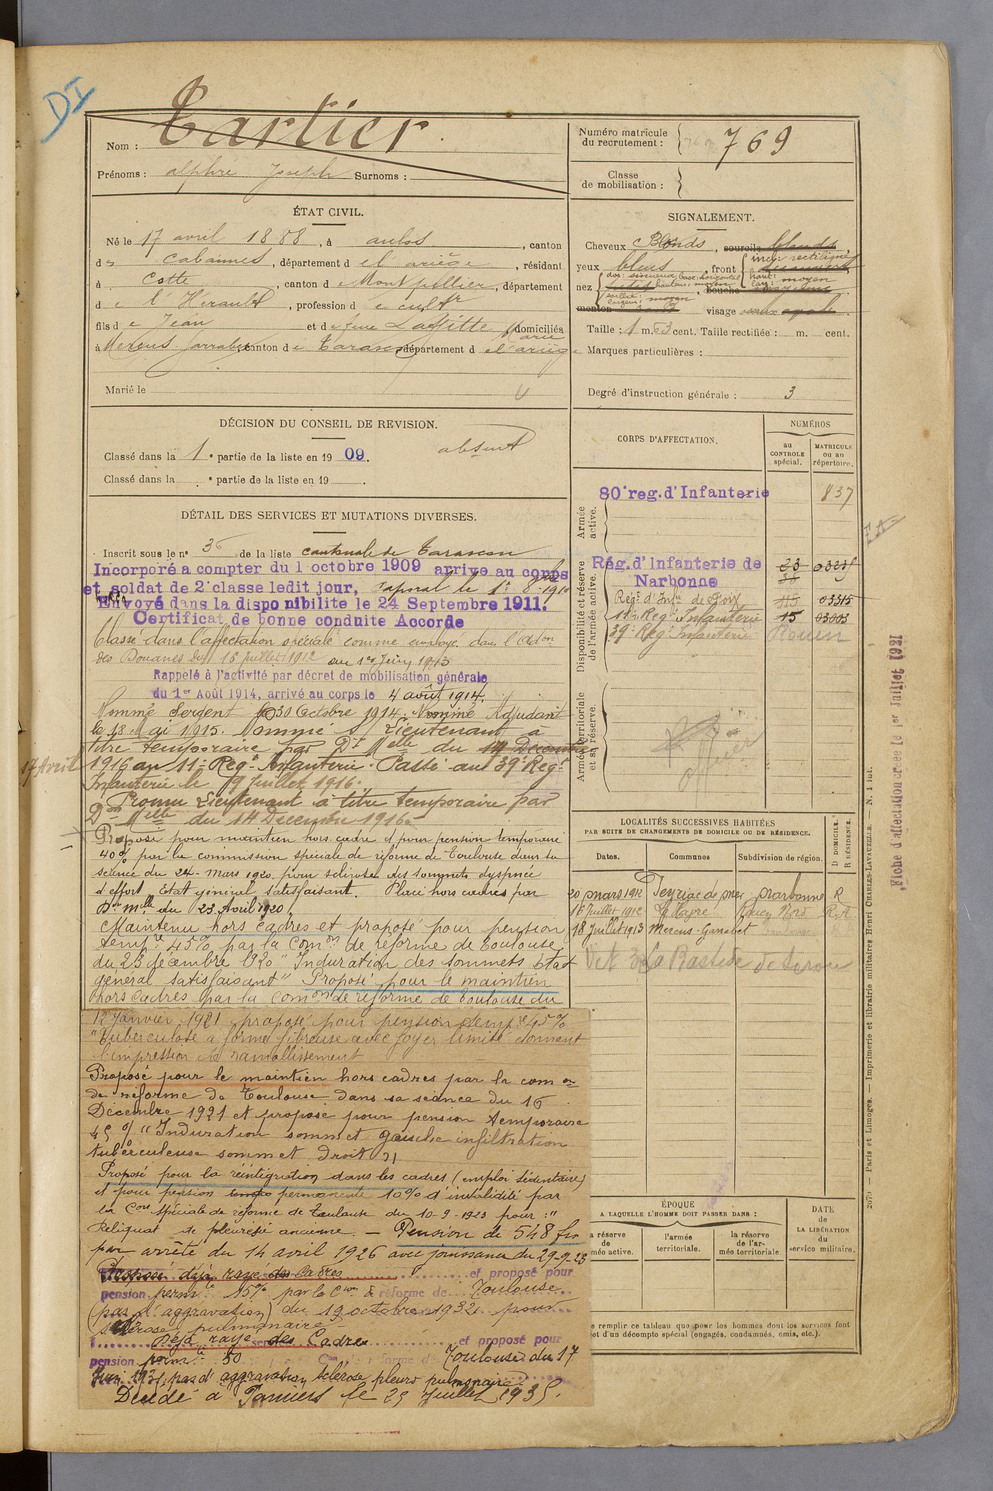 DI
Nom : Cartier
Prénoms : alphre Joseph Surnoms :
ÉTAT CIVIL.
Né le 17 avril 1888, à aulos, canton
de Cabannes, département de l'ariège, résidant
à Cette, canton de Montpellier, département
de l'Hérault, profession de cultr
fils de Jean et de feue Laffitte Marie domiciliés
à Mercus Garrabet canton de Tarascon département de l'ariège
Marié le
DÉCISION DU CONSEIL DE REVISION.
absent
Classé dans la 1e partie de la liste en 1909.
Classé dans la e partie de la liste en 19
DÉTAIL DES SERVICES ET MUTATIONS DIVERSES.
Inscrit sous le n° 36 de la liste cantonale de Tarascon
Incorporé a compter du 1 octobre 1909 arrive au corps
et soldat de 2e classe ledit jour, Caporal le
Envoyé dans la disponibilite le 24 Septembre 1911.
Certificat de bonne conduite Accorde
Classé dans l'affectation spéciale comme employé dans l'adon
des Douanes du 15 juillet 1912 au 1er Juin 1913
Rappelé à l'activité par décret de mobilisation générale
du 1er Août 1914, arrivé au corps le 4 août 1914.
Nommé Sergent le 30 Octobre 1914. Nommé Adjudant
le 18 Mai 1915. Nommé s/Lieutenant à
titre temporaire par Don Melle du 14 Décembre
17 Avril
1916 au 11e Regt Infanterie. Passé au 39e Regt
Infanterie le 9 Juillet 1916.
Promu Lieutenant à titre temporaire par
Don Melle du 14 Décembre 1916
Proposé pour maintien hors cadre et pour pension temporaire
40% par la commission spéciale de réforme de Toulouse dans sa
séance du 24 mars 1920 pour sclérose des sommets dyspnée
d'effort. Etat général satisfaisant. Placé hors cadres par
Don Melle du 23 Avril 1920.
Maintenu hors cadres et proposé pour pension
tempre 45% par la Comon de réforme de Toulouse
du 23 décembre 1920 "Induration des sommets état
général satisfaisant" Proposé pour le maintien
hors cadres par la Comon de réforme de Toulouse du
12 Janvier 1921 proposé pour pension tempre 45%
"Tuberculose à forme fibreuse avec foyer limité donnant
l'impression de ramollissement
Proposé pour le maintien hors cadres par la comon
de réforme de Toulouse dans sa séance du 16
Décembre 1921 et proposé pour pension temporaire
45% "Induration sommet gauche infiltration
tuberculeuse sommet droit"
Proposé pour la réintégration dans les cadres (emploi sédentaire)
et pour pension permanente 10% d'invalidité par
la Con spéciale de réforme de Toulouse du 10-9-1923 pour :"
Reliquat de pleurésie ancienne. — Pension de 548 frs
par arrêté du 14 avril 1926 avec jouissance du 29-9-23
déjà rayé des Cadres et proposé pour
pension perm 15% par la Con de réforme de Toulouse
(pas d'aggravation) du 19 octobre 1932 pour
sclérose pulmonaire
Déjà rayé des Cadres et proposé pour
pension perm 30 réforme de Toulouse du 17
pas d'aggravation sclérose pleuro pulmonaire
Décédé à Pamiers le 25 Juillet 1935.
Numéro matricule
du recrutement : 769
Classe
de mobilisation :
SIGNALEMENT.
Cheveux Blonds, sourcils blonds,
yeux bleus, front incl rectiligne
nez dos: sinueux base: horizontal hauteur: moyen, bouche moyenne
menton visage ovale
Taille : 1 m. 63 cent. Taille rectifiée : m. cent.
Marques particulières :
Degré d'instruction générale : 3
CORPS D'AFFECTATION.
NUMÉROS
au
CONTROLE
spécial.
MATRICULE
ou au
répertoire.
Armée
active.
80e reg. d'Infanterie 837
Disponibilité et réserve
de l'armée active.
Rég. d'Infanterie de
Narbonne
Regt d'Infie de Foix 03315
11e Reg Infanterie 15 03003
39e Reg Infanterie Rouen
Armée territoriale
et sa réserve.
LOCALITÉS SUCCESSIVES HABITÉES
PAR SUITE DE CHANGEMENTS DE DOMICILE OU DE RÉSIDENCE.
Dates.
Communes
Subdivision de région.
D DOMICILE.
R RÉSIDENCE.
20 mars 1912 Peyriac de mer Narbonne R
18 Juillet 1913 Mercus-Garrabet
La Bastide de Serou
ÉPOQUE
A LAQUELLE L'HOMME DOIT PASSER DANS :
la réserve
de
l'armée active.
l'armée
territoriale.
la réserve
de l'ar-
mée territoriale.
DATE
de
LA LIBÉRATION
du
service militaire.
Ne remplir ce tableau que pour les hommes dont les services font
l'objet d'un décompte spécial (engagés, condamnés, omis, etc.).
2079 — Paris et Limoges. — Imprimerie et librairie militaires Henri CHARLES-LAVAUZELLE.
Fiche d'affectation créée le 1er Juillet 1921